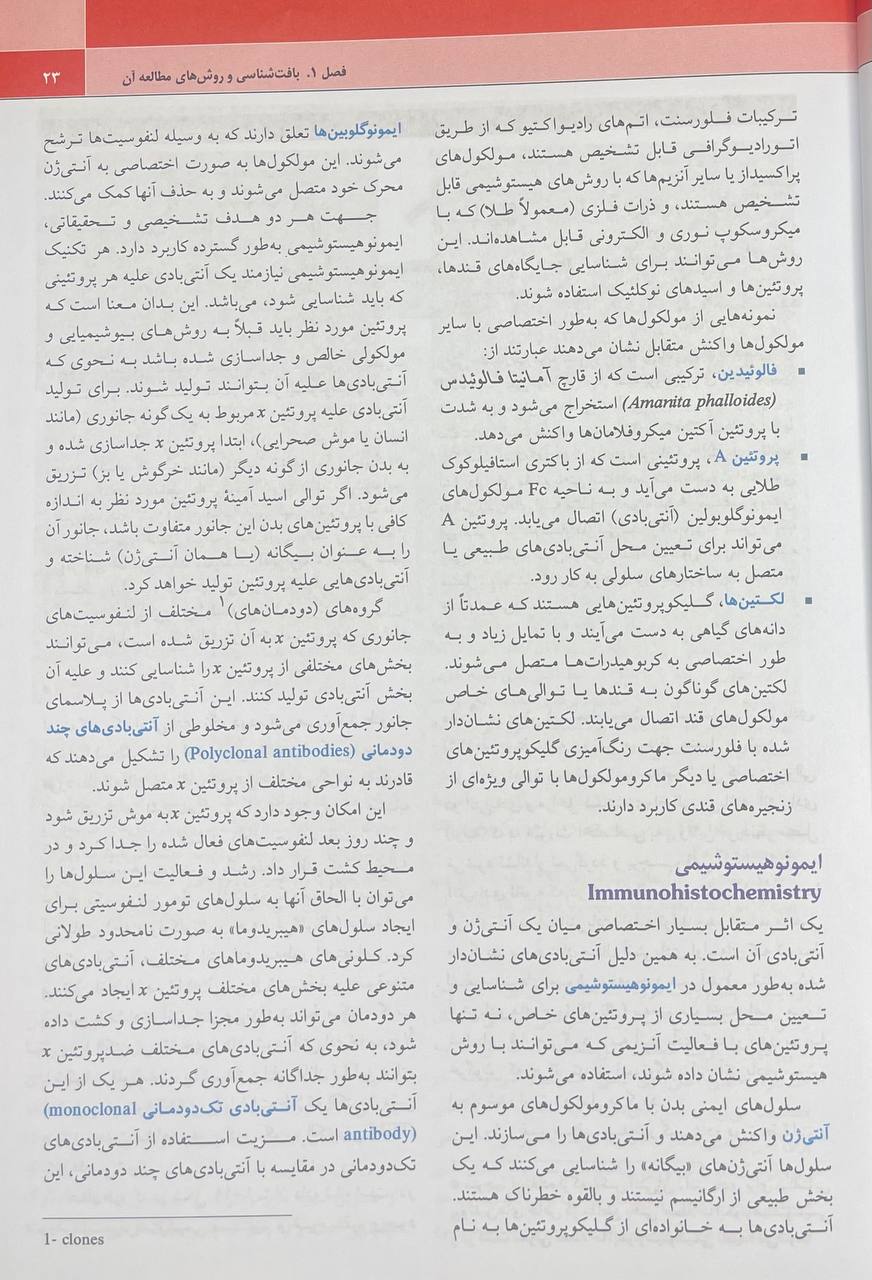 فصل ۱. بافت‌شناسی و روش‌های مطالعه آن
۲۳
ترکیبات فلورسنت، اتم‌های رادیواکتیو که از طریق
اتورادیوگرافی قابل تشخیص هستند، مولکول‌های
پراکسیداز یا سایر آنزیم‌ها که با روش‌های هیستوشیمی قابل
تشخیص هستند، و ذرات فلزی (معمولاً طلا) که با
میکروسکوپ نوری و الکترونی قابل مشاهده‌اند. این
روش‌ها می‌توانند برای شناسایی جایگاه‌های قندها،
پروتئین‌ها و اسیدهای نوکلئیک استفاده شوند.
نمونه‌هایی از مولکول‌ها که به‌طور اختصاصی با سایر
مولکول‌ها واکنش متقابل نشان می‌دهند عبارتند از:
▪ فالوئیدین، ترکیبی است که از قارچ آمانیتا فالوئیدس
(Amanita phalloides) استخراج می‌شود و به شدت
با پروتئین آکتین میکروفلامان‌ها واکنش می‌دهد.
▪ پروتئین A، پروتئینی است که از باکتری استافیلوکوک
طلایی به دست می‌آید و به ناحیه Fc مولکول‌های
ایمونوگلوبولین (آنتی‌بادی) اتصال می‌یابد. پروتئین A
می‌تواند برای تعیین محل آنتی‌بادی‌های طبیعی یا
متصل به ساختارهای سلولی به کار رود.
▪ لکتین‌ها، گلیکوپروتئین‌هایی هستند که عمدتاً از
دانه‌های گیاهی به دست می‌آیند و با تمایل زیاد و به
طور اختصاصی به کربوهیدرات‌ها متصل می‌شوند.
لکتین‌های گوناگون به قندها یا توالی‌های خاص
مولکول‌های قند اتصال می‌یابند. لکتین‌های نشان‌دار
شده با فلورسنت جهت رنگ‌آمیزی گلیکوپروتئین‌های
اختصاصی یا دیگر ماکرومولکول‌ها با توالی ویژه‌ای از
زنجیره‌های قندی کاربرد دارند.
ایمونوهیستوشیمی
Immunohistochemistry
یک اثر متقابل بسیار اختصاصی میان یک آنتی‌ژن و
آنتی‌بادی آن است. به همین دلیل آنتی‌بادی‌های نشان‌دار
شده به‌طور معمول در ایمونوهیستوشیمی برای شناسایی و
تعیین محل بسیاری از پروتئین‌های خاص، نه تنها
پروتئین‌های با فعالیت آنزیمی که می‌توانند با روش
هیستوشیمی نشان داده شوند، استفاده می‌شوند.
سلول‌های ایمنی بدن با ماکرومولکول‌های موسوم به
آنتی‌ژن واکنش می‌دهند و آنتی‌بادی‌ها را می‌سازند. این
سلول‌ها آنتی‌ژن‌های «بیگانه» را شناسایی می‌کنند که یک
بخش طبیعی از ارگانیسم نیستند و بالقوه خطرناک هستند.
آنتی‌بادی‌ها به خانواده‌ای از گلیکوپروتئین‌ها به نام
ایمونوگلوبین‌ها تعلق دارند که به وسیله لنفوسیت‌ها ترشح
می‌شوند. این مولکول‌ها به صورت اختصاصی به آنتی‌ژن
محرک خود متصل می‌شوند و به حذف آنها کمک می‌کنند.
جهت هر دو هدف تشخیصی و تحقیقاتی،
ایمونوهیستوشیمی به‌طور گسترده کاربرد دارد. هر تکنیک
ایمونوهیستوشیمی نیازمند یک آنتی‌بادی علیه هر پروتئینی
که باید شناسایی شود، می‌باشد. این بدان معنا است که
پروتئین مورد نظر باید قبلاً به روش‌های بیوشیمیایی و
مولکولی خالص و جداسازی شده باشد به نحوی که
آنتی‌بادی‌ها علیه آن بتوانند تولید شوند. برای تولید
آنتی‌بادی علیه پروتئین x مربوط به یک گونه جانوری (مانند
انسان یا موش صحرایی)، ابتدا پروتئین x جداسازی شده و
به بدن جانوری از گونه دیگر (مانند خرگوش یا بز) تزریق
می‌شود. اگر توالی اسید آمینهٔ پروتئین مورد نظر به اندازه
کافی با پروتئین‌های بدن این جانور متفاوت باشد، جانور آن
را به عنوان بیگانه (یا همان آنتی‌ژن) شناخته و
آنتی‌بادی‌هایی علیه پروتئین تولید خواهد کرد.
گروه‌های (دودمان‌های)۱ مختلف از لنفوسیت‌های
جانوری که پروتئین x به آن تزریق شده است، می‌توانند
بخش‌های مختلفی از پروتئین x را شناسایی کنند و علیه آن
بخش آنتی‌بادی تولید کنند. این آنتی‌بادی‌ها از پلاسمای
جانور جمع‌آوری می‌شود و مخلوطی از آنتی‌بادی‌های چند
دودمانی (Polyclonal antibodies) را تشکیل می‌دهند که
قادرند به نواحی مختلف از پروتئین x متصل شوند.
این امکان وجود دارد که پروتئین x به موش تزریق شود
و چند روز بعد لنفوسیت‌های فعال شده را جدا کرد و در
محیط کشت قرار داد. رشد و فعالیت این سلول‌ها را
می‌توان با الحاق آنها به سلول‌های تومور لنفوسیتی برای
ایجاد سلول‌های «هیبریدوما» به صورت نامحدود طولانی
کرد. کلونی‌های هیبریدوماهای مختلف، آنتی‌بادی‌های
متنوعی علیه بخش‌های مختلف پروتئین x ایجاد می‌کنند.
هر دودمان می‌تواند به‌طور مجزا جداسازی و کشت داده
شود، به نحوی که آنتی‌بادی‌های مختلف ضدپروتئین x
بتوانند به‌طور جداگانه جمع‌آوری گردند. هر یک از این
آنتی‌بادی‌ها یک آنتی‌بادی تک‌دودمانی (monoclonal
antibody) است. مزیت استفاده از آنتی‌بادی‌های
تک‌دودمانی در مقایسه با آنتی‌بادی‌های چند دودمانی، این
1- clones